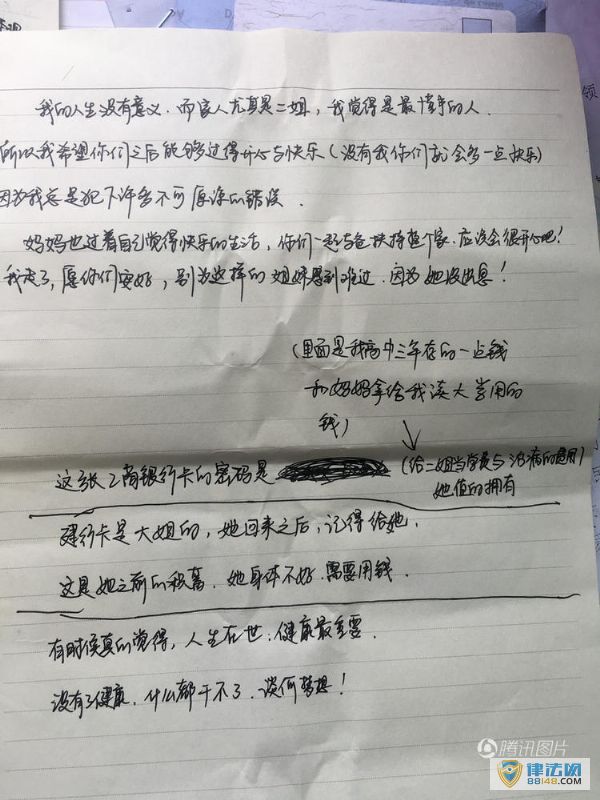 我的人生没有意义.而家人尤其是二姐,我觉得是最懂事的人.
所以我希望你们之后能够过得开心与快乐(没有我你们就会多一点快乐)
因为我总是犯下许多不可原谅的错误.
妈妈也过着自己觉得快乐的生活,你们一起与爸扶持整个家.应该会很开心吧!
我走了,愿你们安好,别为这样的姐妹感到难过.因为她没出息!
(里面是我高中三年存的一点钱
和妈妈拿给我读大学用的
钱)
这张工商银行卡的密码是 (给二姐当学费与治病的费用)
她值的拥有
建行卡是大姐的,她回来之后,记得给她.
这是她之前的积蓄.她身体不好.需要用钱.
有时候真的觉得,人生在世.健康最重要.
没有了健康.什么都干不了.谈何梦想!
腾讯图片
律法网
88148.COM